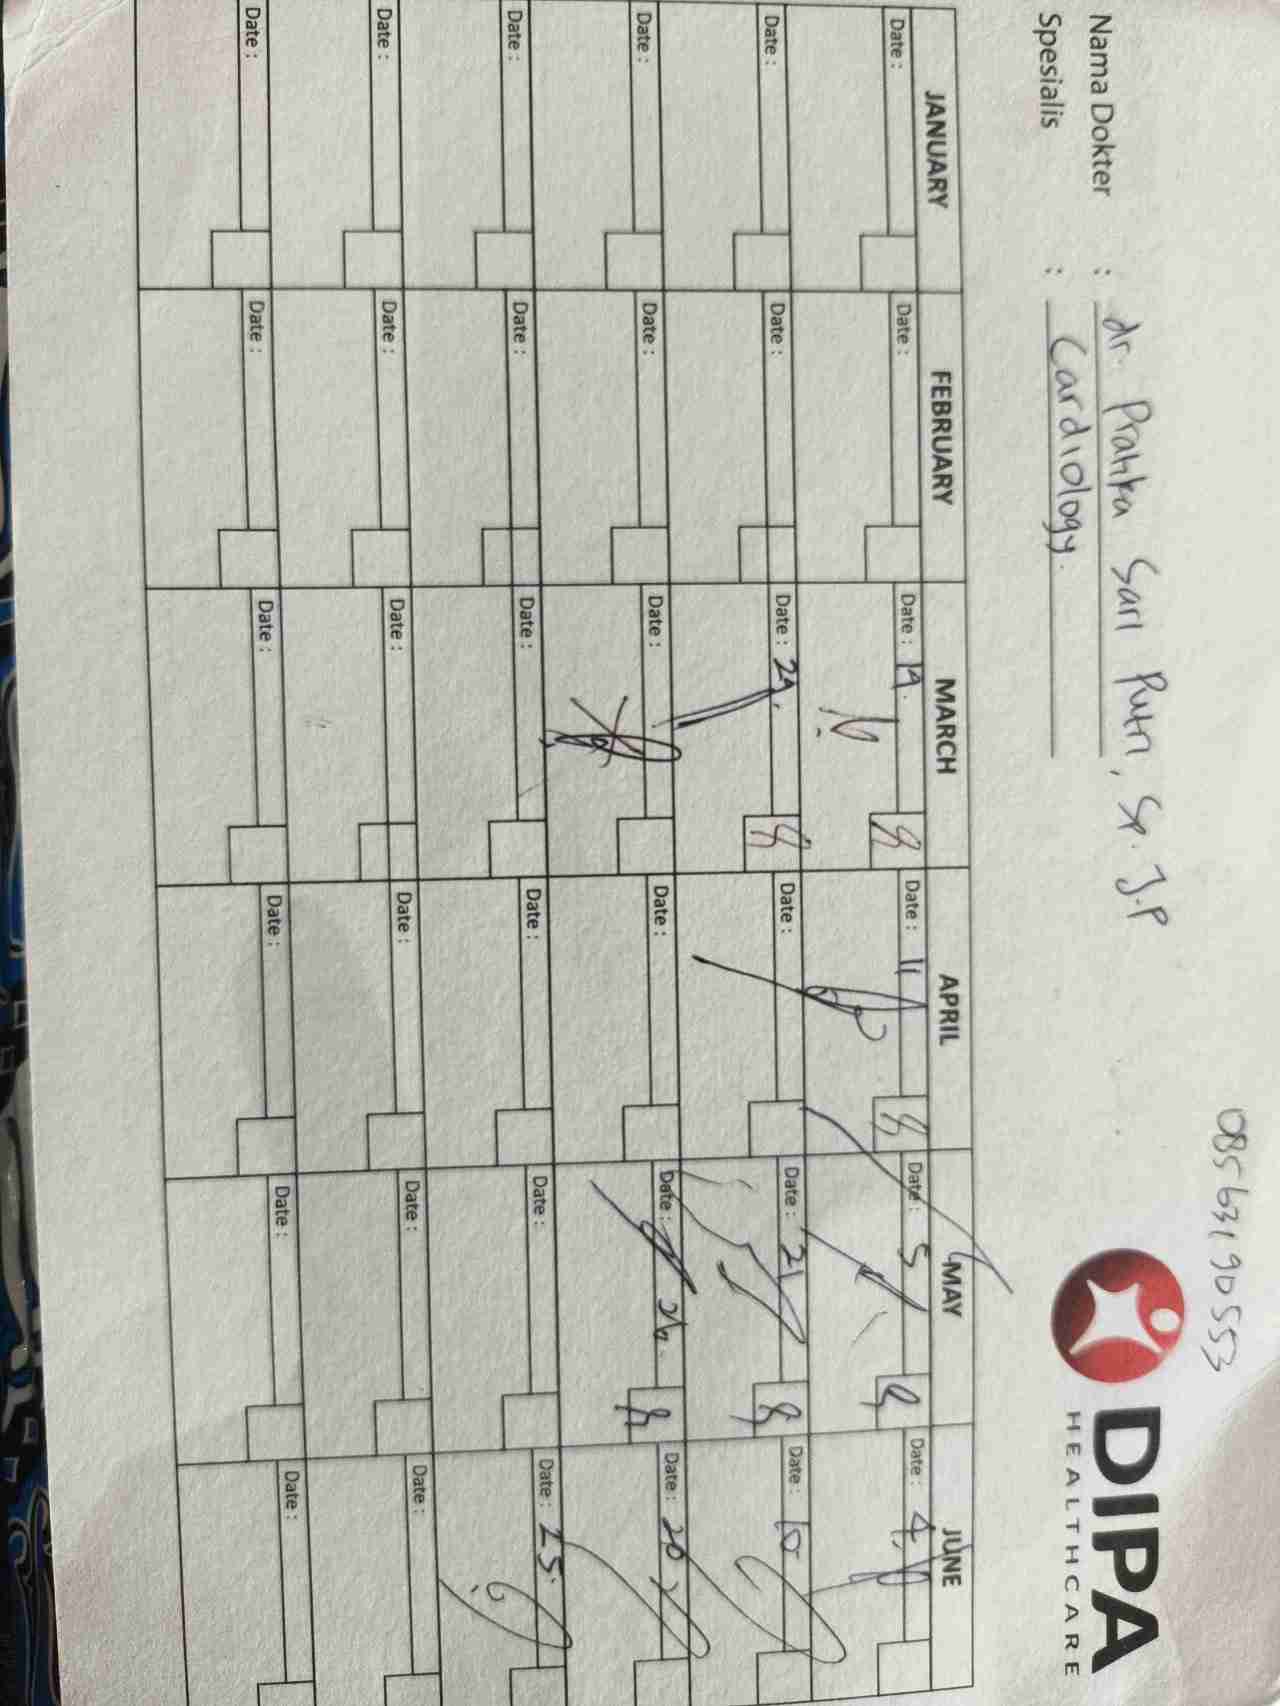 085631 90553
DIPA
HEALTHCARE
Nama Dokter : dr. Pratika Sari Putri, Sp. J.P
Spesialis : Cardiology.
JANUARY FEBRUARY MARCH APRIL MAY JUNE
Date : Date : Date : 19. Date : 11 Date : 5 Date : 4
8 8 8
Date : Date : Date : Date : Date : 21 Date : 10
8 8
Date : Date : Date : Date : Date : Date : 20
8
Date : Date : Date : Date : Date : Date : 25.
Date : Date : Date : Date : Date : Date :
Date : Date : Date : Date : Date : Date :